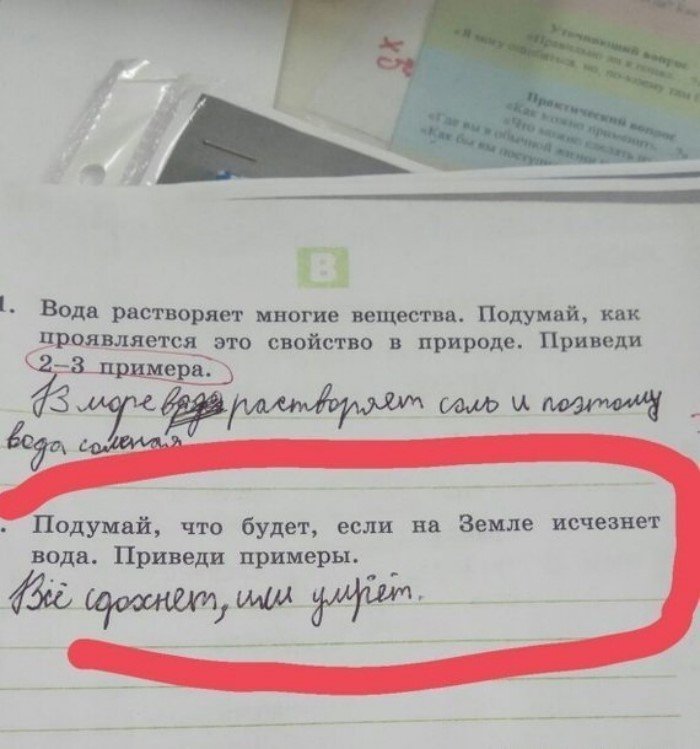 х5
Уточняющий вопрос
Практический вопрос
«Как можно применить
«Что можно сделать
«Где вы в обычной жизни
«Как бы вы поступи
В
1. Вода растворяет многие вещества. Подумай, как
проявляется это свойство в природе. Приведи
2–3 примера.
В море вода растворяет соль и поэтому
вода соленая
. Подумай, что будет, если на Земле исчезнет
вода. Приведи примеры.
Всё сдохнет, или умрёт.